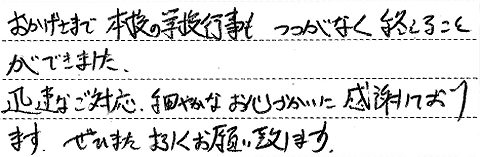 おかげさまで 本校の学校行事も つつがなく 終えること
ができました。
迅速なご対応、細やかな お心づかいに 感謝しており
ます。ぜひまた よろしくお願い致します。